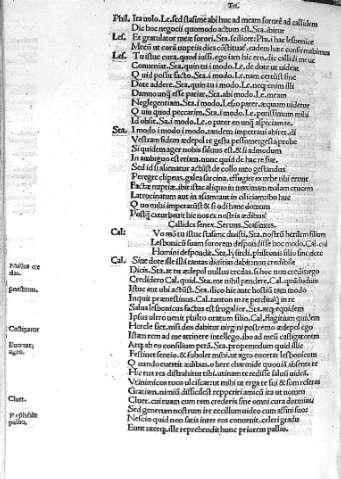 Tri.
Phil. Ita uolo. Le. sed statime abi huc ad meam sororē ad callidem
Dic hoc negocii quomodo actum est. Sta. ibitur
Les. Et gratulator meæ sorori. Sta. scilicet: Phi. i hac lesbonice
Mecū ut coram nuptiis dies
Les. Tu istuc cura, quod iussi, ego iam hic ero, dic callidi me ut
Conueniat. Sta. quin tu i modo. Le. de dote ut uideat
Quid posus facto. Sta. i modo. Le. nam certū est sine
Dote haud dare. Sta. quin tu i modo. Le. neq; enim illi
Damno unq̄ esse patiar. Sta. abi modo. Le. meam
Neglegentiam. Sta. i modo. Le. o pater, æquum uidetur
Quin quod peccarim. Sta. i modo. Le. potissimum mihi
Id obsit. Sta. i modo. Le. o pater en unq̄ aspiciam te.
Sta. I modo i modo i modo, tandem impetraui abiret. di
Vestram fidem ædepol re gesta pessime gesta probe
Si quidem ager nobis saluus est. & si admodum
In ambiguo est etiam nunc quid de hac re fiat.
Sed id si alienatur actū est de collo meo gestandus
Peregre clipeus, galea sarcina, effugiet ex urbe ubi erunt
Factæ nuptiæ. ibit istac aliquo in maximam malam crucem
Latrocinatum aut in asiam aut in ciliciam ibo huc
Quo mihi imperatū est & si odi hanc domum
Postq̄ exturbauit hic nos ex nostris ædibus
Callides senex. Seruus. Stasimus.
Cal: Vo modo tu istuc stasime dixisti. Sta. nostrū herilem filium
Lesbonicū suam sororem despondisse hoc modo. Cal. cui
Homini despondit. Sta. lysiteli, philtonis filio sine dote
Cal. Sine dote ille illā in tantas diuitias dabit: non credibile
Dicis. Sta. at tu ædepol nullus credas. si hoc non credis ego
Credidero. Cal. quid. Sta. me nihil pendere. Cal. quā dudum
Istuc aut ubi actū est. Sta. ilico hic ante hostiū
Inquit prænestinus. Cal. tanton in re perdita q̄ in re
Salua lesbonicus factus est frugalior. Sta. atq; equidem
Ipsus ultro uenit philto oratum filio. Cal. flagitium quidem
Hercle fiet. nisi dos dabitur uirgini postremo ædepol ego
Istam rem ad me attinere intellego. ibo ad meū castigatorem
Atq; ab eo consilium petā. Sta. propemodum quid ille
Festinet sentio, & subolet mihi. ut agro euortat lesbonicum
Quando euertit ædibus. o here charmide quom absente te
Hic tuæ res distrahuntur tibi. utinam te rediisse saluū uideā.
Vt inimicos tuos ulciscare: ut mihi ut erga te fui & sum referas
Gratiam. nimiū difficile est repperiri amicū ita ut nomen
Cluet. cui tuam cum rem credideris sine omni cura dormias
Sed generum nostrum ire eccillum uideo cum affini suo
Nescio quid non satis inter eos conuenit. celeri gradu
Eunt uterq;. ille reprehendit hunc priorem pallio.
Nullus credas.
prænestinus.
Castigator
Euortat;
agro.
Cluet.
pallio.